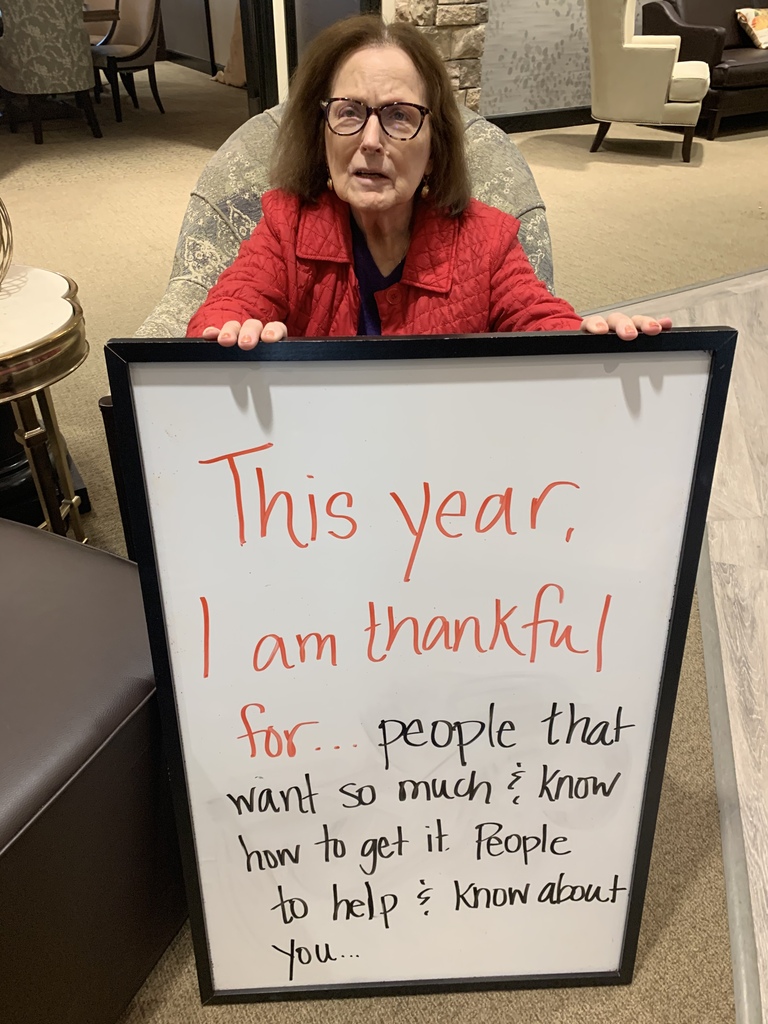 This year,
I am thankful
for... people that
want so much & know
how to get it. People
to help & know about
you...